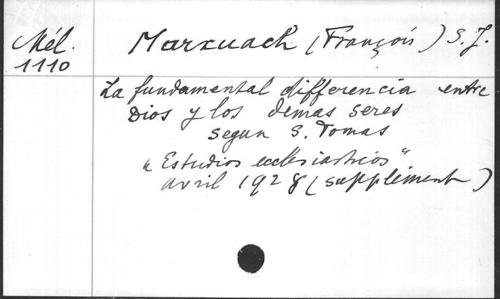 Mél.
1110
Marxuach (François) S.J.
La fundamental differencia entre
Dios y los demas seres
segun S. Tomas
"Estudios ecclesiasticos"
avril 1928 (supplément)